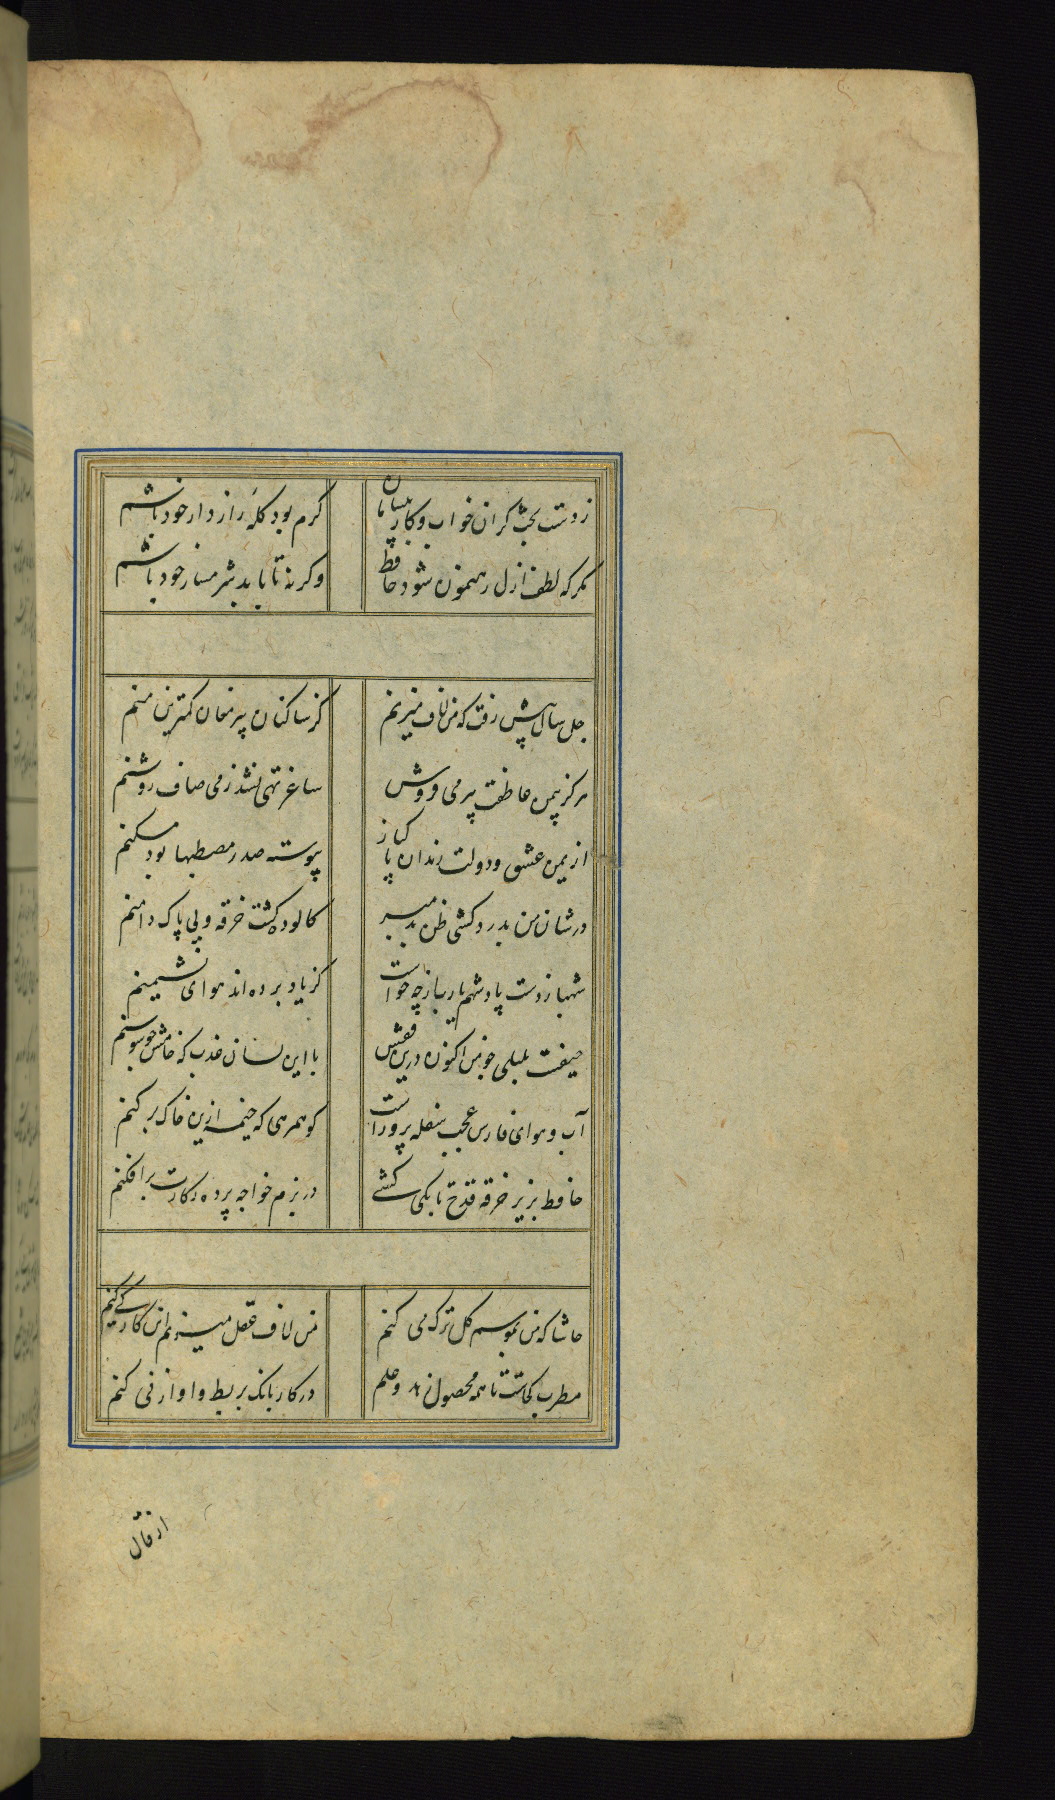 ز دست بخت کران خواب و کار بیسامان کرم بود کلهٔ راز دار خود باشم
مکر که لطف ازل رهنمون شود حافظ وکرنه تا بابد شرمسار خود باشم
چل سال پیش رفت که من لاف میزنم کز ساکنان پیر مغان کمترین منم
هرکز بیمن عاطفت پیر می فروش ساغر تهی نشد ز می صاف روشنم
از یمن عشق و دولت رندان پاکباز پیوسته صدر مصطبها بود مسکنم
در شان من بدردکشی ظن بد مبر کالوده کشت خرقه ولی پاک دامنم
شهباز دست پادشهم یا رب از چه خواست کز یاد برده اند هوای نشیمنم
حیفست بلبلی چو من اکنون درین قفس با این لسان عذب که خامش چو سوسنم
آب و هوای فارس عجب سفله پرورست کو همرهی که خیمه ازین خاک برکنم
حافظ بزیر خرقه قدح تا بکی کشی در بزم خواجه پرده ز کارت برافکنم
حاشا که من بموسم کل ترک می کنم من لاف عقل میزنم این کار کی کنم
مطرب کجاست تا همه محصول زهد و علم در کار بانک بربط و اواز نی کنم
از قال